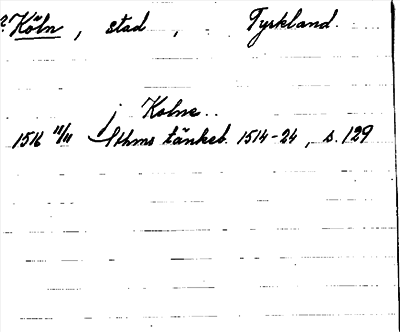 ? Köln, stad, Tyskland.
j Kolne..
1516 11/11 Sthms tänkeb. 1514-24, s. 129